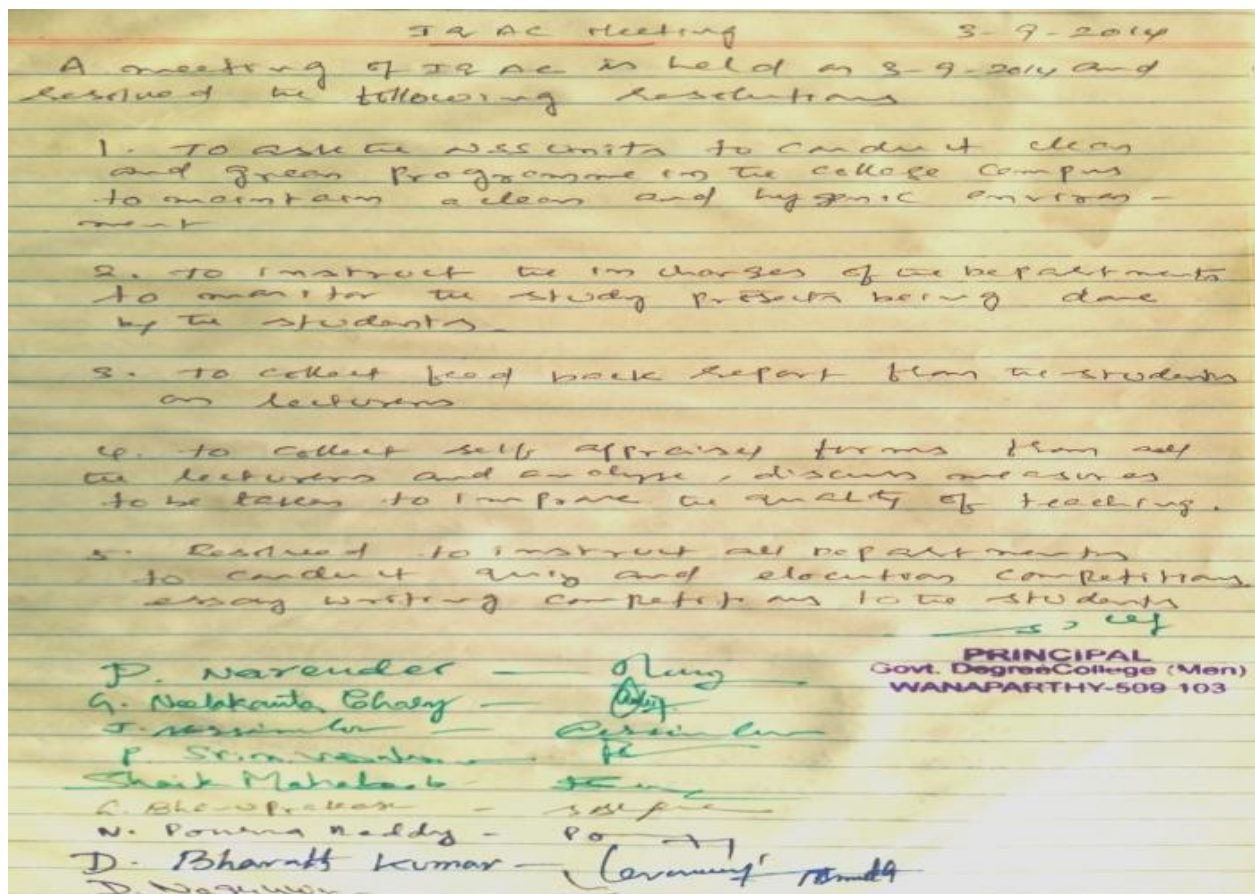 IQAC Meeting 3-9-2014
A meeting of IQAC is held on 3-9-2014 and
resolved the following resolutions
1. To ask the NSS units to conduct clean
and green programme in the college campus
to maintain a clean and hygenic environ-
ment
2. To instruct the in charges of the Departments
to monitor the study projects being done
by the students.
3. To collect feed back report from the students
on lecturers
4. To collect self appraisal forms from all
the lecturers and analyse, discuss measures
to be taken to improve the quality of teaching.
5. Resolved to instruct all Departments
to conduct quiz and elocution competitions
essay writing competitions to the students
PRINCIPAL
Govt. Degree College (Men)
WANAPARTHY-509 103
P. Narender —
G. Neelakanta Chary —
P. 
Shaik Mahaboob -
N. Pourna Reddy -
D. Bharath Kumar —